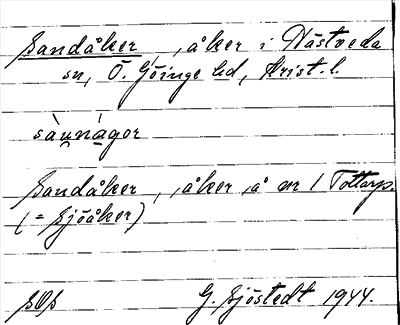 Sandåker, åker i Nästveda
sn, Ö. Göinge hd, Krist. l.
sàu̯ná̱gor
Sandåker, åker å nr 1 Tottarp.
(= Sjöåker)
G. Sjöstedt 1944.